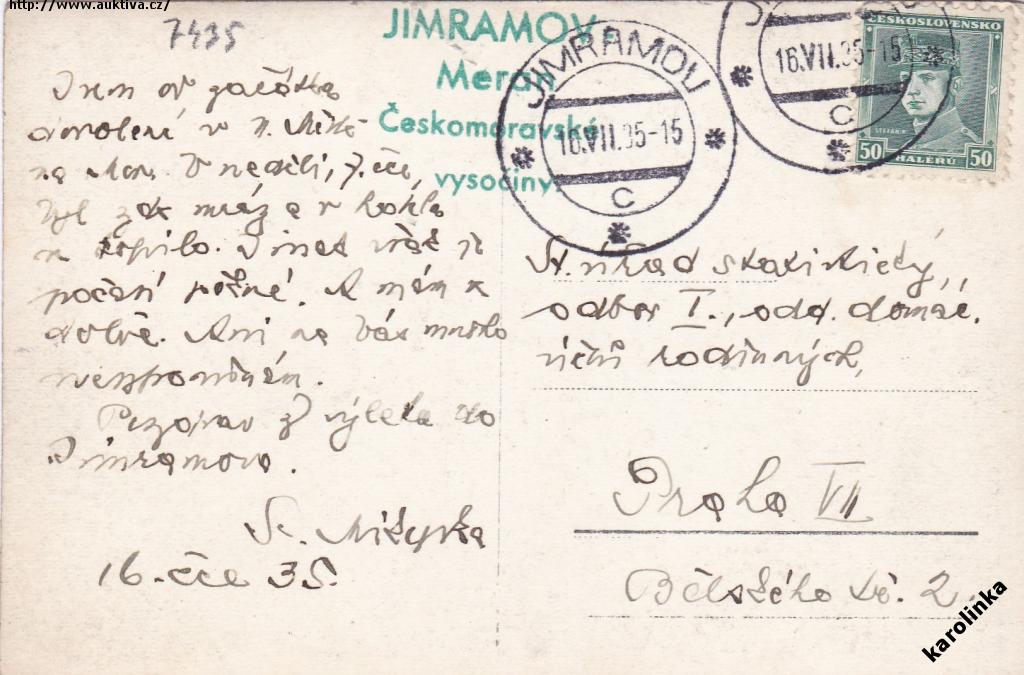 http://www.auktiva.cz/
7435
JIMRAMOV,
Meran
Českomoravské
vysočiny.
JIMRAMOV
16.VII.35-15
C
16.VII.35-15
C
ČESKOSLOVENSKO
ŠTEFÁNIK
50 HALÉŘŮ 50
Jsem od začátku
dovolené v N. Městě
na Mor. V neděli, 7. čce,
byl zde mráz a v
počasí pěkné. A mám se
dobře. Ani na Vás mnoho
nevzpomínám.
Pozdrav z výletu do
Jimramova.
16. čce 35.
St. úřad statistický,
odbor I., odd. domác.
účtů rodinných,
Praha VII
Bělského tř. 2.
karolinka